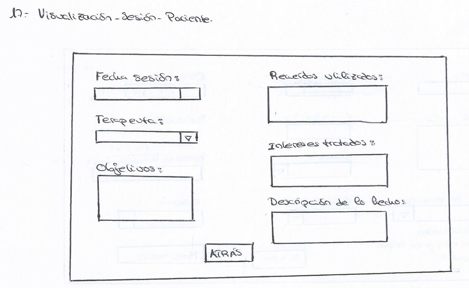 17.- Visualización-Sesión-Paciente.
Fecha sesión:
Terapeuta:
Objetivos:
Recuerdos utilizados:
Intereses tratados:
Descripción de lo hecho:
ATRÁS